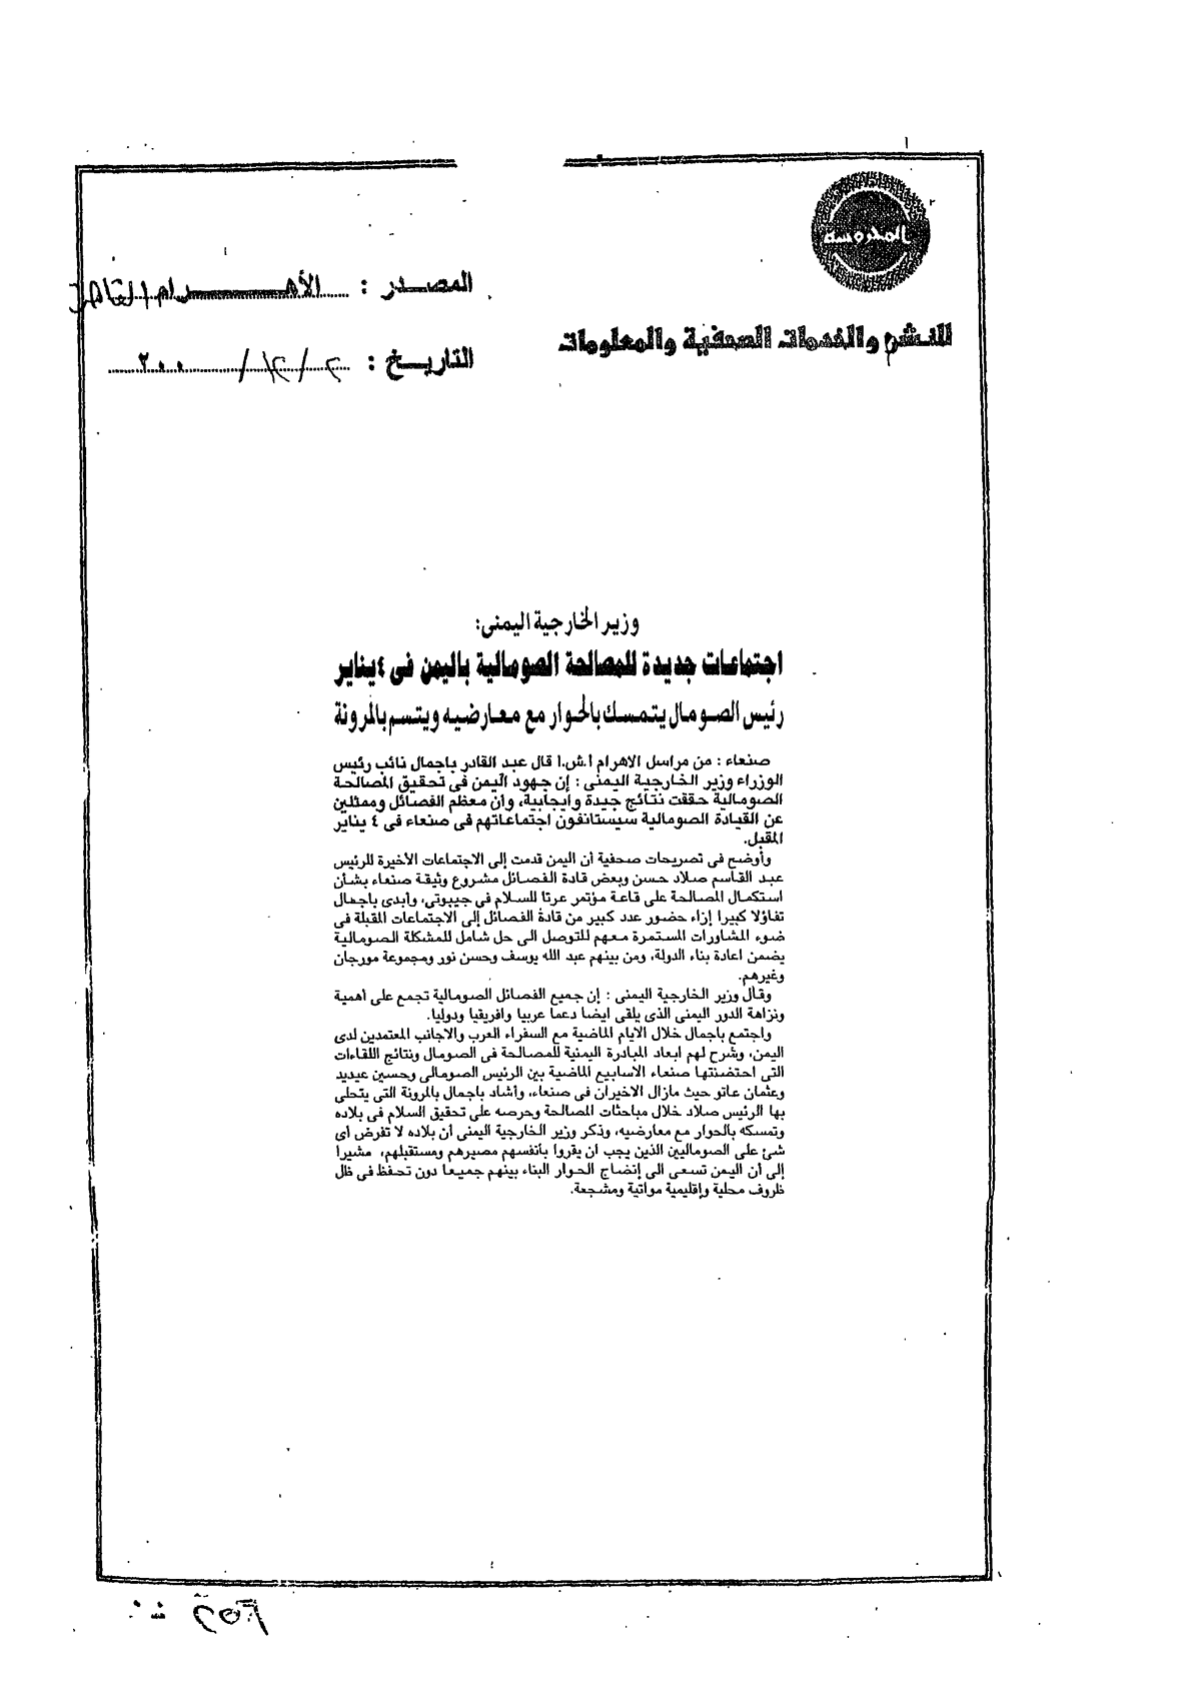 المحروسة
للنشر والخدمات الصحفية والمعلومات
المصدر : الأهرام القاهرة
التاريخ : / ١٢ / ٢٠٠٠
وزير الخارجية اليمنى:
اجتماعات جديدة للمصالحة الصومالية باليمن فى ٤ يناير
رئيس الصومال يتمسك بالحوار مع معارضيه ويتسم بالمرونة
صنعاء : من مراسل الاهرام ا.ش.ا قال عبد القادر باجمال نائب رئيس
الوزراء وزير الخارجية اليمنى : إن جهود اليمن فى تحقيق المصالحة
الصومالية حققت نتائج جيدة وايجابية، وان معظم الفصائل وممثلين
عن القيادة الصومالية سيستانفون اجتماعاتهم فى صنعاء فى ٤ يناير
المقبل.
وأوضح فى تصريحات صحفية أن اليمن قدمت إلى الاجتماعات الأخيرة للرئيس
عبد القاسم صلاد حسن وبعض قادة الفصائل مشروع وثيقة صنعاء بشأن
استكمال المصالحة على قاعة مؤتمر عرتا للسلام فى جيبوتى، وأبدى باجمال
تفاؤلا كبيرا إزاء حضور عدد كبير من قادة الفصائل إلى الاجتماعات المقبلة فى
ضوء المشاورات المستمرة معهم للتوصل الى حل شامل للمشكلة الصومالية
يضمن اعادة بناء الدولة، ومن بينهم عبد الله يوسف وحسن نور ومجموعة مورجان
وغيرهم.
وقال وزير الخارجية اليمنى : إن جميع الفصائل الصومالية تجمع على أهمية
ونزاهة الدور اليمنى الذى يلقى ايضا دعما عربيا وافريقيا ودوليا.
واجتمع باجمال خلال الايام الماضية مع السفراء العرب والاجانب المعتمدين لدى
اليمن، وشرح لهم ابعاد المبادرة اليمنية للمصالحة فى الصومال ونتائج اللقاءات
التى احتضنتها صنعاء الاسابيع الماضية بين الرئيس الصومالى وحسين عيديد
وعثمان عاتو حيث مازال الاخيران فى صنعاء، وأشاد باجمال بالمرونة التى يتحلى
بها الرئيس صلاد خلال مباحثات المصالحة وحرصه على تحقيق السلام فى بلاده
وتمسكه بالحوار مع معارضيه، وذكر وزير الخارجية اليمنى أن بلاده لا تفرض اى
شئ على الصوماليين الذين يجب ان يقروا بأنفسهم مصيرهم ومستقبلهم، مشيرا
إلى أن اليمن تسعى الى إنضاج الحوار البناء بينهم جميعا دون تحفظ فى ظل
ظروف محلية وإقليمية مواتية ومشجعة.